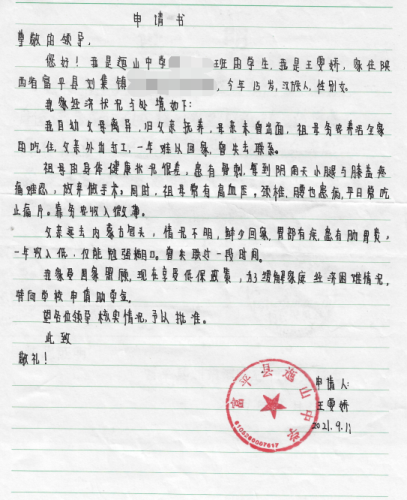 申请书
尊敬的领导:
您好!我是迤山中学 班的学生,我是王雯娇,家住陕
西省富平县刘集镇 ,今年15岁,汉族人,性别女。
我家经济状况与处境如下:
我自幼父母离异,归父亲抚养,母亲未曾出面,祖母务农养活全家
的吃住,父亲外出打工,一年难以回家,曾失去联系。
祖母由身体健康状况很差,患有骨刺,每到阴雨天小腿与膝盖疼
痛难忍,放弃做手术,同时,祖母常有高血压。颈椎,腰也患病,平日常吃
止痛片。靠务农收入微薄。
父亲远去内蒙古包头,情况不明,鲜少回家,胃部有疾,患有胆
一年收入低,仅能勉强糊口。曾未联络一段时间。
我家是因家里顾,现在享受低保政策,为了缓解家庭经济困难情况,
特向学校申请助学金。
望各位领导核实情况,予以批准。
此致
敬礼!
富平县迤山中学
申请人:
王雯娇
2021.9.1